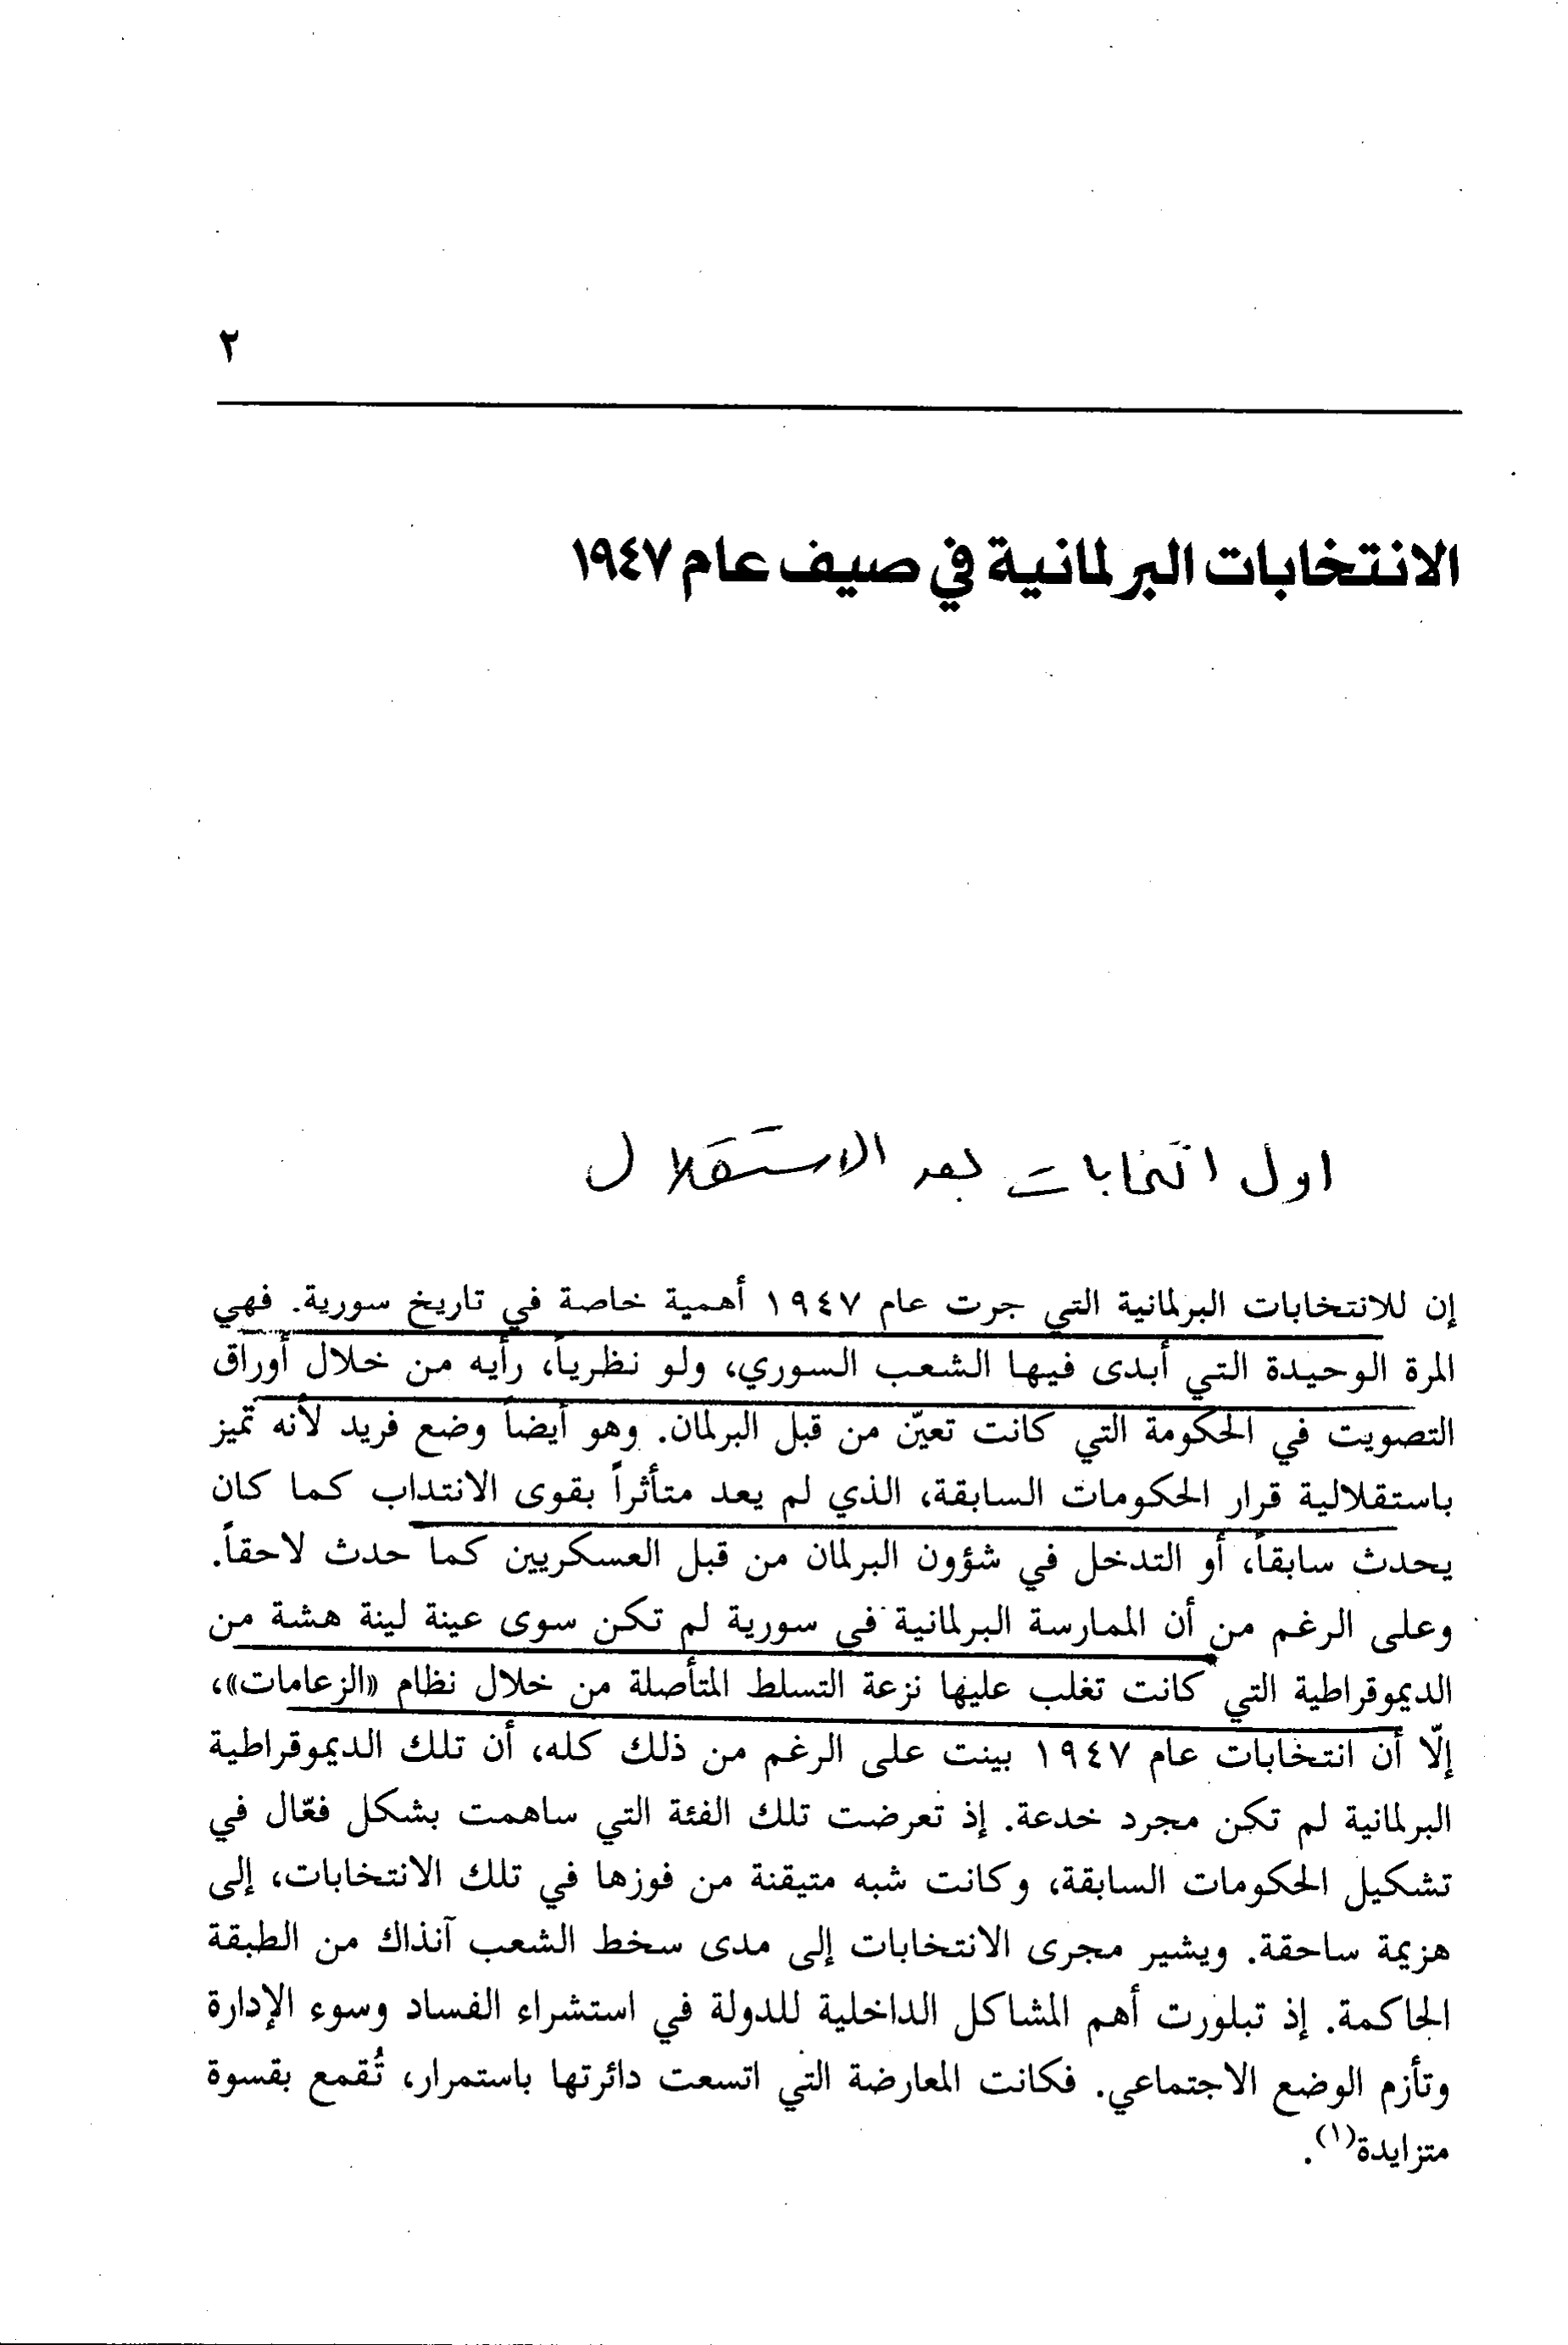 ٢
الانتخابات البرلمانية في صيف عام ١٩٤٧
اول انتخابات بعد الاستقلال
إن للانتخابات البرلمانية التي جرت عام ١٩٤٧ أهمية خاصة في تاريخ سورية. فهي
المرة الوحيدة التي أبدى فيها الشعب السوري، ولو نظرياً، رأيه من خلال أوراق
التصويت في الحكومة التي كانت تعيّن من قبل البرلمان. وهو أيضاً وضع فريد لأنه تميز
باستقلالية قرار الحكومات السابقة، الذي لم يعد متأثراً بقوى الانتداب كما كان
يحدث سابقاً، أو التدخل في شؤون البرلمان من قبل العسكريين كما حدث لاحقاً.
وعلى الرغم من أن الممارسة البرلمانية في سورية لم تكن سوى عينة لينة هشة من
الديموقراطية التي كانت تغلب عليها نزعة التسلط المتأصلة من خلال نظام «الزعامات»،
إلّا أن انتخابات عام ١٩٤٧ بينت على الرغم من ذلك كله، أن تلك الديموقراطية
البرلمانية لم تكن مجرد خدعة. إذ تعرضت تلك الفئة التي ساهمت بشكل فعّال في
تشكيل الحكومات السابقة، وكانت شبه متيقنة من فوزها في تلك الانتخابات، إلى
هزيمة ساحقة. ويشير مجرى الانتخابات إلى مدى سخط الشعب آنذاك من الطبقة
الحاكمة. إذ تبلورت أهم المشاكل الداخلية للدولة في استشراء الفساد وسوء الإدارة
وتأزم الوضع الاجتماعي. فكانت المعارضة التي اتسعت دائرتها باستمرار، تُقمع بقسوة
متزايدة(١).